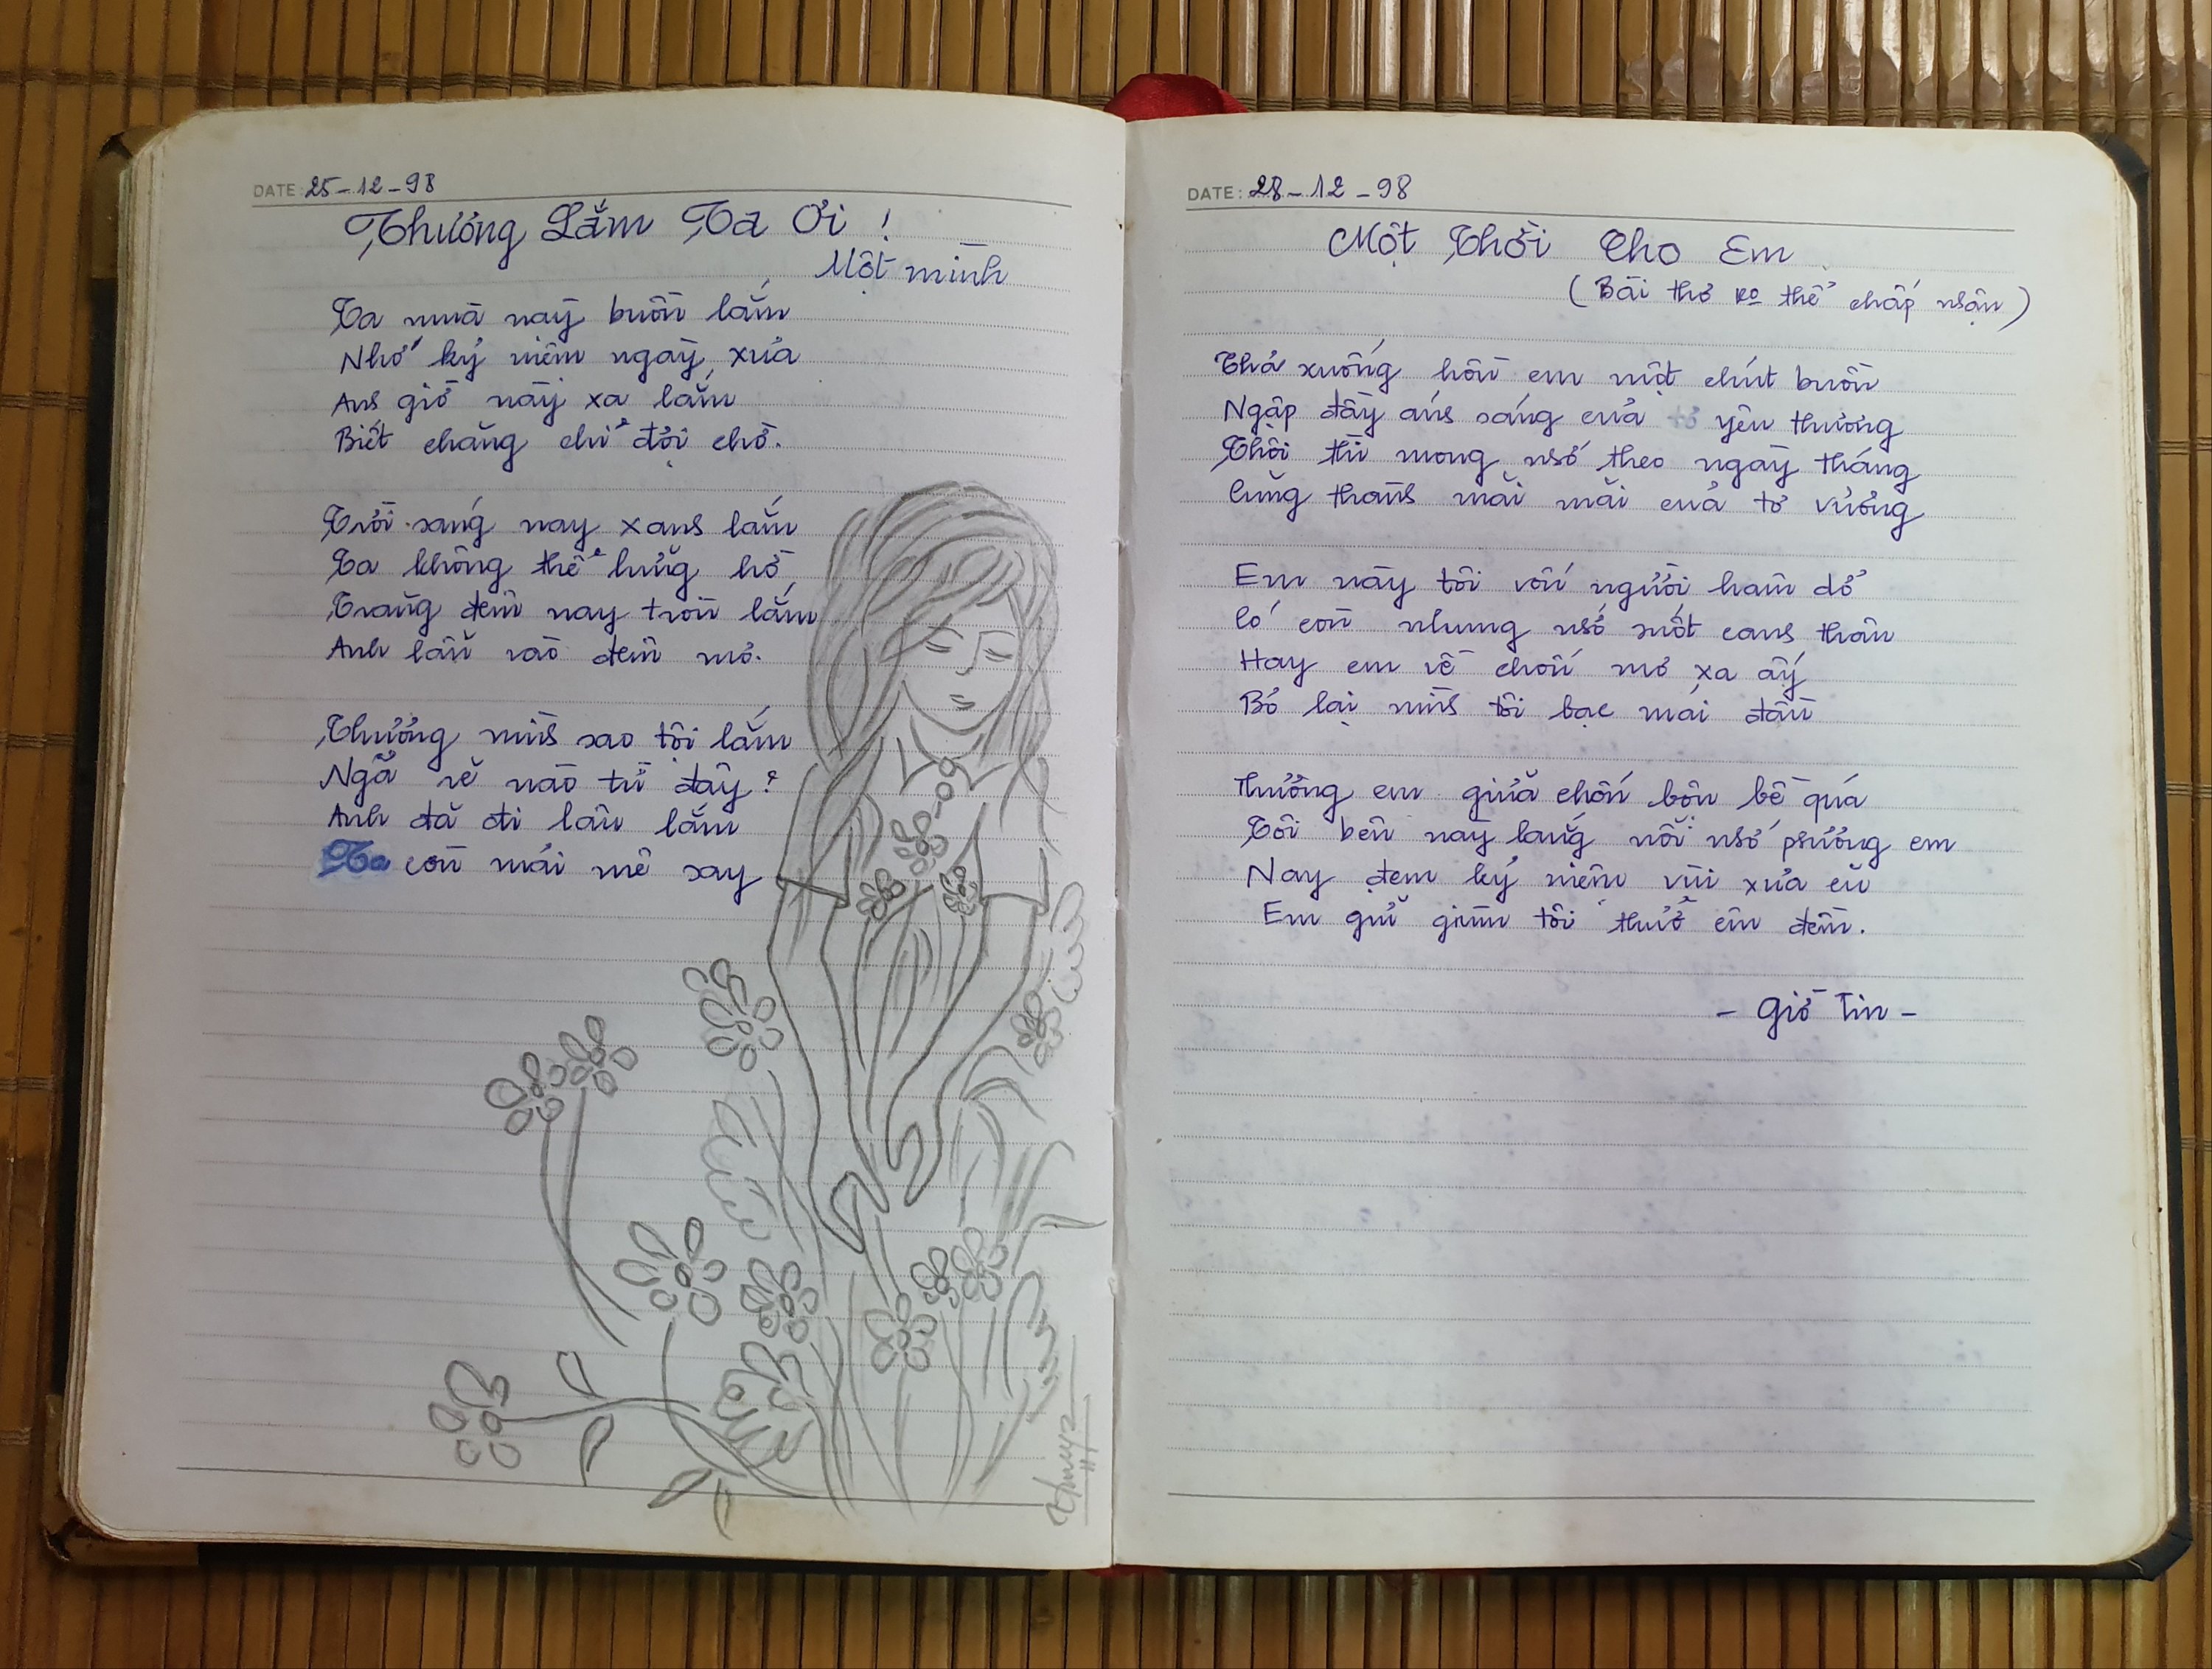 DATE: 25-12-98
Thương Lắm Ta Ơi !
Một mình
Ta mùa này buồn lắm
Nhớ kỷ niệm ngày xưa
Anh giờ này xa lắm
Biết chăng chỉ đợi chờ.
Trời sáng nay xanh lắm
Ta không thể hững hờ
Trăng đêm nay tròn lắm
Anh lẫn vào đêm mơ.
Thương mình sao tội lắm
Ngã rẽ nào từ đây?
Anh đã đi lâu lắm
Ta còn mãi mê say
DATE: 28-12-98
Một Thời Cho Em
(Bài thơ ko thể chấp nhận)
Thả xuống hồn em một chút buồn
Ngập đầy ánh sáng của yêu thương
Thôi thì mong nhớ theo ngày tháng
Cũng thành mãi mãi của tơ vương
Em này tôi vốn người ham dở
Có còn nhung nhớ suốt canh thân
Hay em về chốn mơ xa ấy
Bỏ lại mình tôi bạc mái đầu
Thương em giữa chốn bộn bề quá
Tôi bên này lặng nỗi nhớ phương em
Nay đem kỷ niệm vùi xưa cũ
Em giữ giùm tôi thuở êm đềm.
- Gió Tin -